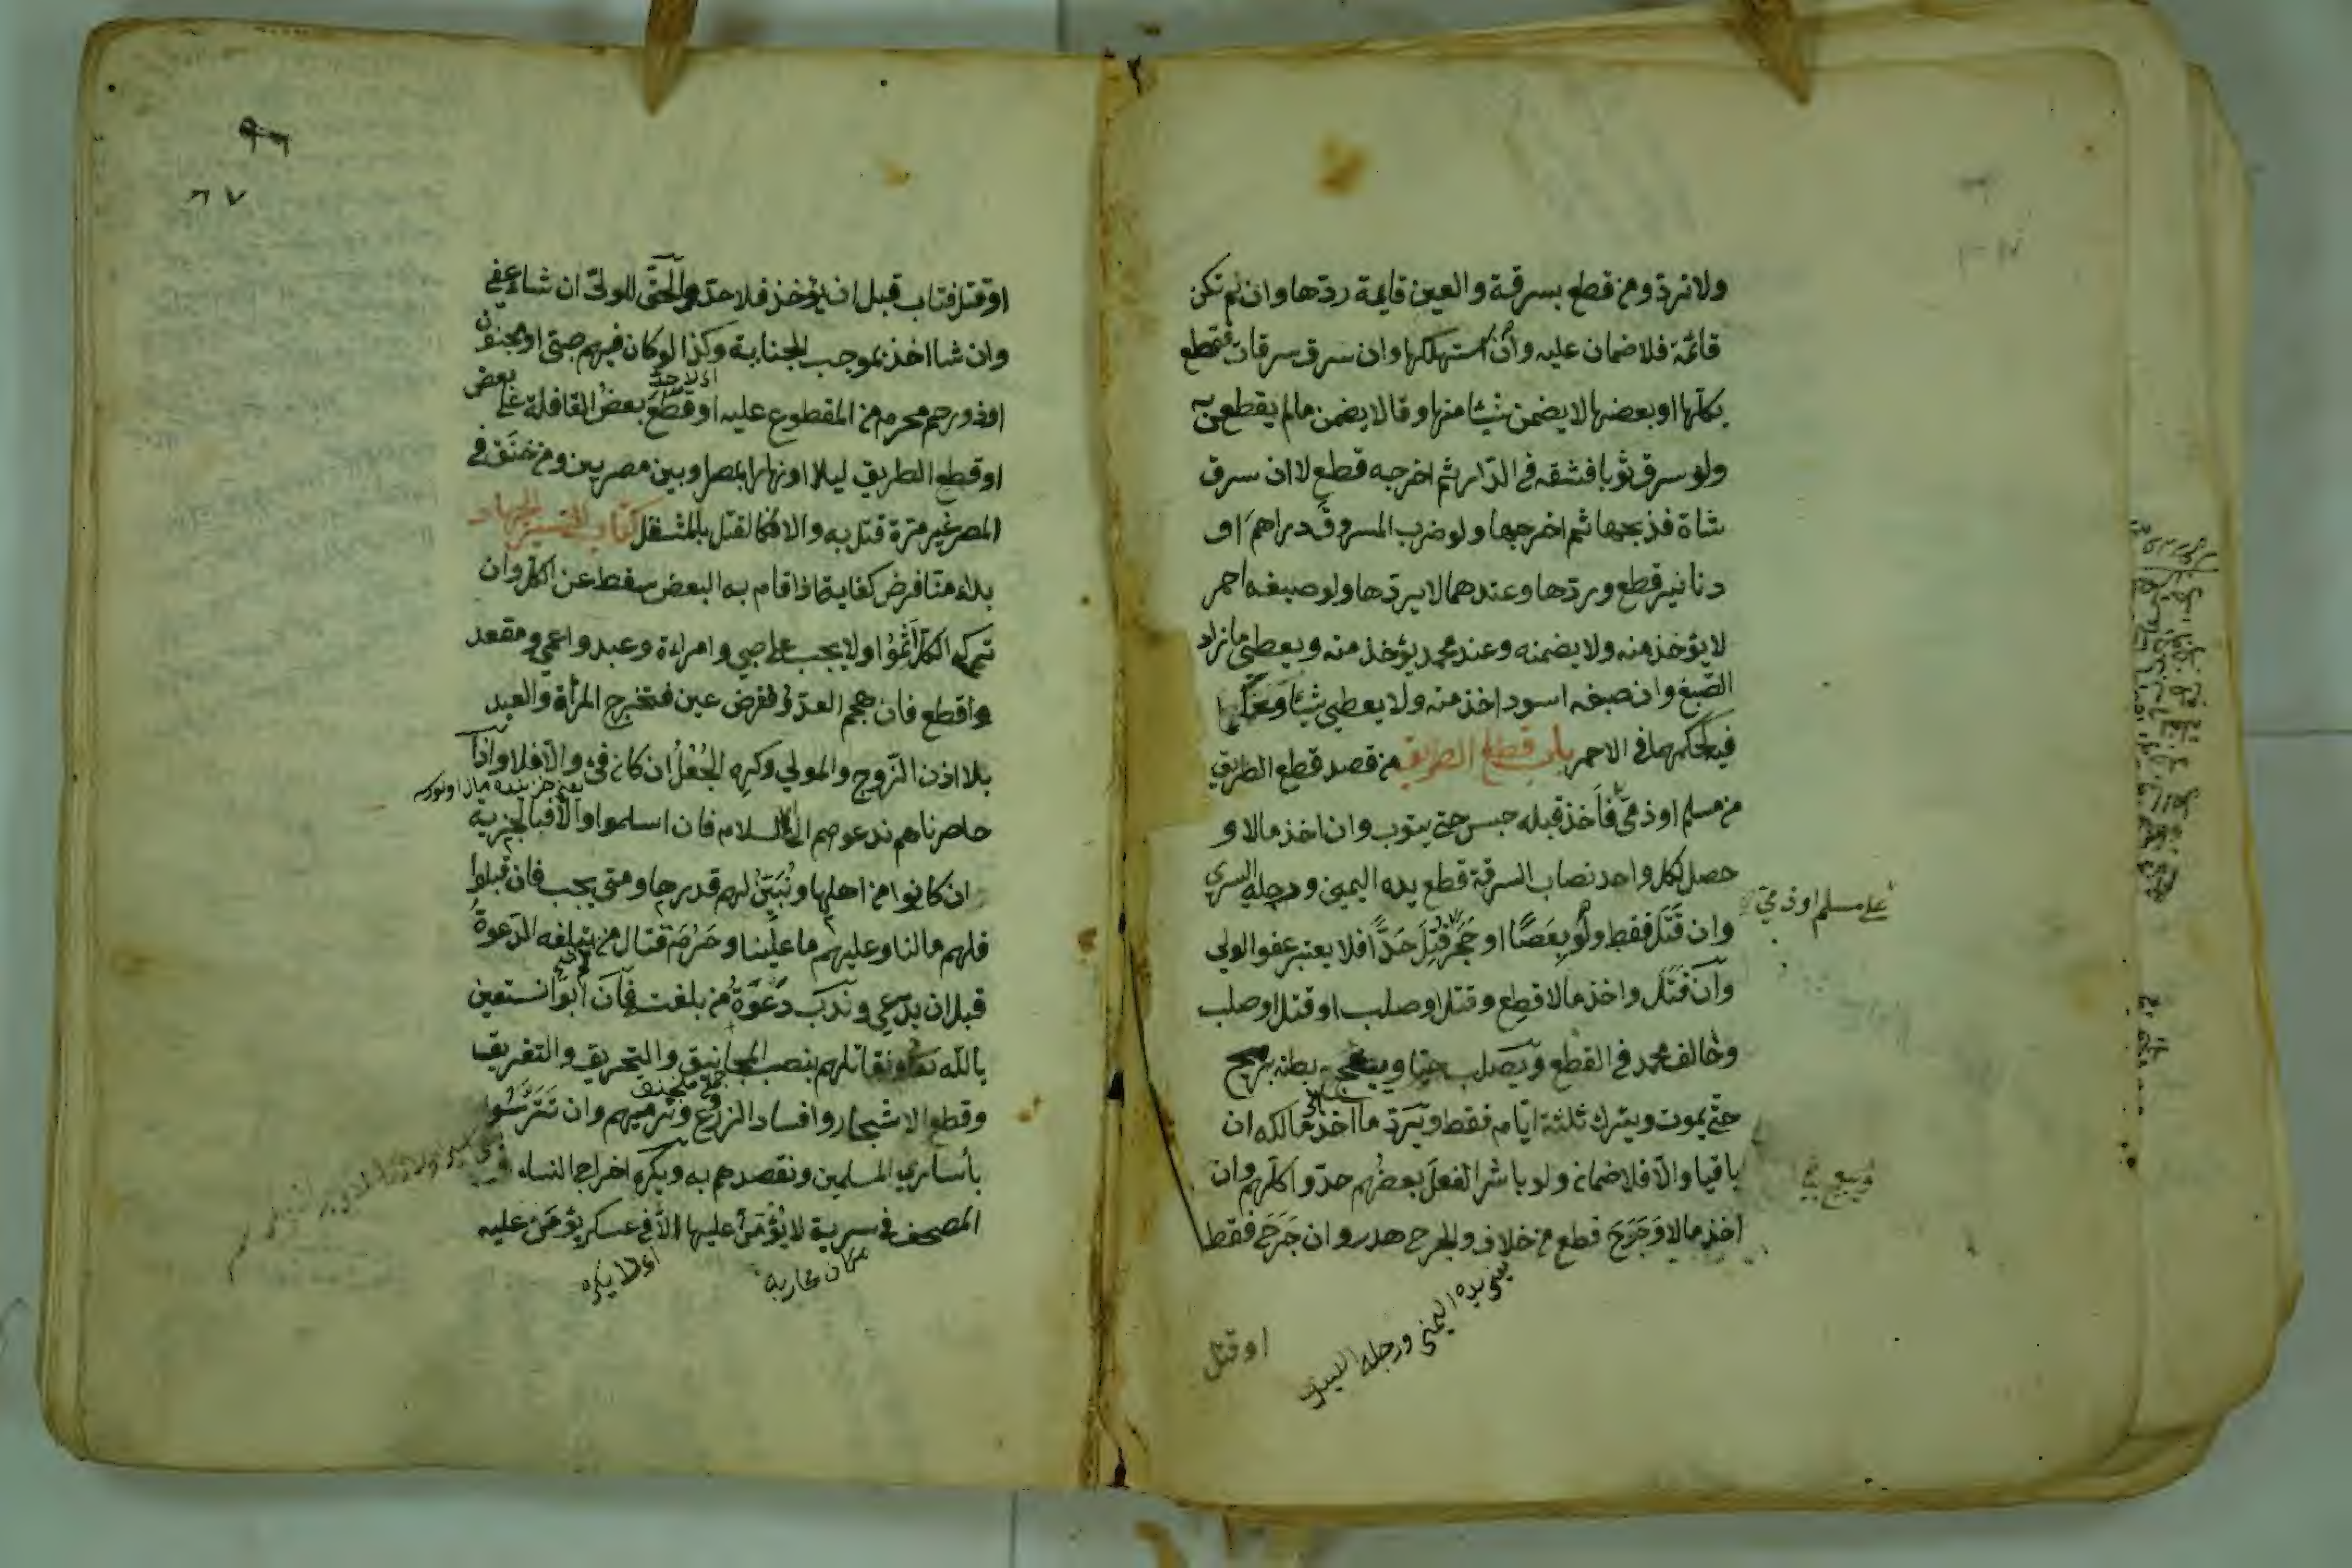 ولا ترد ومن قطع بسرقة والعين قايمة ردها وان لم تكن
قائمة فلا ضمان عليه وان استهلكها وان سرق سرقات فقطع
بكلها او بعضها لا يضمن شيئا منها وقالا يضمن مالم يقطع به
ولو سرق ثوبا فشقه في الدار ثم اخرجه قطع لا ان سرق
شاة فذبحها ثم اخرجها ولو ضرب المسروق دراهم او
دنانير قطع وردها وعندهما لا يردها ولو صبغه احمر
لا يؤخذ منه ولا يضمنه وعند محمد يؤخذ منه ويعطى ما زاد
الصبغ وان صبغه اسود اخذ منه ولا يعطى شيئا وحكما
فيه كحكمهما في الاحمر باب قطع الطريق من قصد قطع الطريق
من مسلم او ذمي فاخذ قبله حبس حتى يتوب وان اخذ مالا و
حصل لكل واحد نصاب السرقة قطع يده اليمنى ورجله اليسرى
على مسلم او ذمي
وان قتل فقط ولو بعصا او حجر قتل حدا فلا يعتبر عفو الولي
وان قتل واخذ مالا قطع وقتل او صلب او قتل او صلب
وخالف محمد في القطع ويصلب حيا ويبعج بطنه برمح
حتى يموت ويترك ثلثة ايام فقط ويرد ما اخذ مالكه ان
باقيا والا فلا ضمان ولو باشر الفعل بعضهم حدوا كلهم وان
اخذ مالا وجرح قطع من خلاف والجرح هدر وان جرح فقط
يعني يده اليمنى ورجله اليسرى
او قتل
٩٦
٦٧
او قتل فتاب قبل ان يؤخذ فلا حد والحق للولي ان شاء عفى
وان شا اخذ بموجب الجناية وكذا لو كان فيهم صبى او مجنون
اى لا حد
او ذو رحم محرم من المقطوع عليه او قطع بعض القافلة على بعض
او قطع الطريق ليلا او نهارا بمصر او بين مصرين ومن خنق في
المصر غير مرة قتل به والا فكالقتل بالمثقل كتاب السير الجهاد
بداء منا فرض كفاية اذا قام به البعض سقط عن الكل وان
تركه الكل اثموا ولا يجب على صبي وامراءة وعبد واعمى ومقعد
واقطع فان هجم العدو ففرض عين فتخرج المرأة والعبد
بلا اذن الزوج والمولي وكره الجعل ان كان فئ والا فلا واذا
حاصرناهم ندعوهم الى الاسلام فان اسلموا والا فبالجزية
ان كانوا من اهلها ونبين لهم قدرها ومتى يجب فان قبلوا
فلهم ما لنا وعليهم ما علينا وحرم قتال من تبلغه الدعوة
قبل ان يدعى وندب دعوة من بلغت فان ابوا نستعين
بالله تعا ونقاتلهم بنصب المجانيق والتحريق والتغريق
جمع منجنق
وقطع الاشجار وافساد الزرع ونرميهم وان تترسوا
بأسارى المسلمين ونقصدهم به ويكره اخراج النساء و
المصحف في سرية لا يؤمن عليها الا في عسكر يؤمن عليه
اى لا يكره